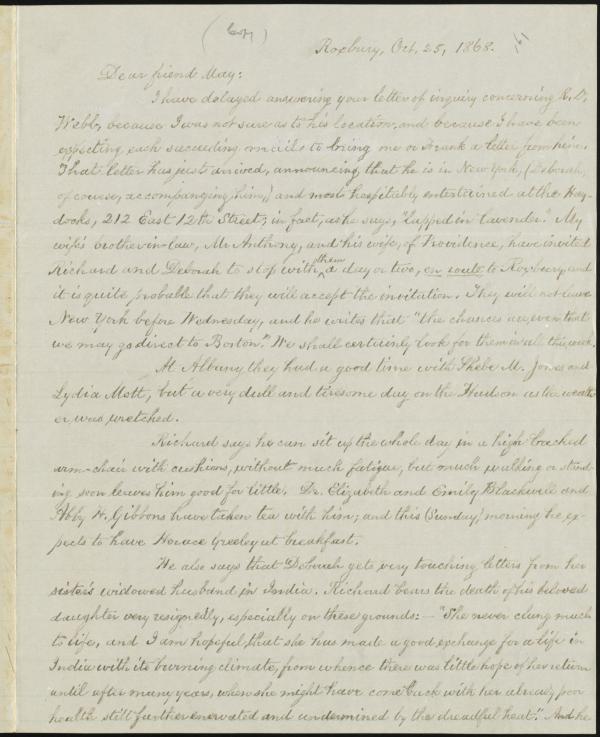 (Copy)
Roxbury, Oct. 25, 1868.
Dear friend May:
I have delayed answering your letter of inquiry concerning R. D.
Webb, because I was not sure as to his location, and because I have been
expecting each succeeding mail to bring me or Frank a letter from him.
That letter has just arrived, announcing that he is in New York, (Deborah,
of course, accompanying him,) and most hospitably entertained at the Hay-
docks, 212 East 12th Street; in fact, as he says, "lapped in lavender." My
wife's brother-in-law, Mr. Anthony, and his wife, of Providence, have invited
Richard and Deborah to stop with them a day or two, en route to Roxbury, and
it is quite probable that they will accept the invitation. They will not leave
New York before Wednesday, and he writes that "the chances are even that
we may go direct to Boston." We shall certainly look for them in all this week.
At Albany they had a good time with Phebe M. Jones and
Lydia Mott, but a very dull and tiresome day on the Hudson as the weath-
er was wretched.
Richard says he can sit up the whole day in a high backed
arm-chair with cushions, without much fatigue, but much walking or stand-
ing soon leaves him good for little. Dr. Elizabeth and Emily Blackwell and
Abby H. Gibbons have taken tea with him; and this (Sunday) morning he ex-
pects to have Horace Greeley at breakfast.
He also says that Deborah gets very touching letters from her
sister's widowed husband in India. Richard bears the death of his beloved
daughter very resignedly, especially on these grounds:— "She never clung much
to life, and I am hopeful that she has made a good exchange for a life in
India with its burning climate, from whence there was little hope of her return
until after many years, when she might have come back with her already poor
health still further enervated and undermined by the dreadful heat." And he